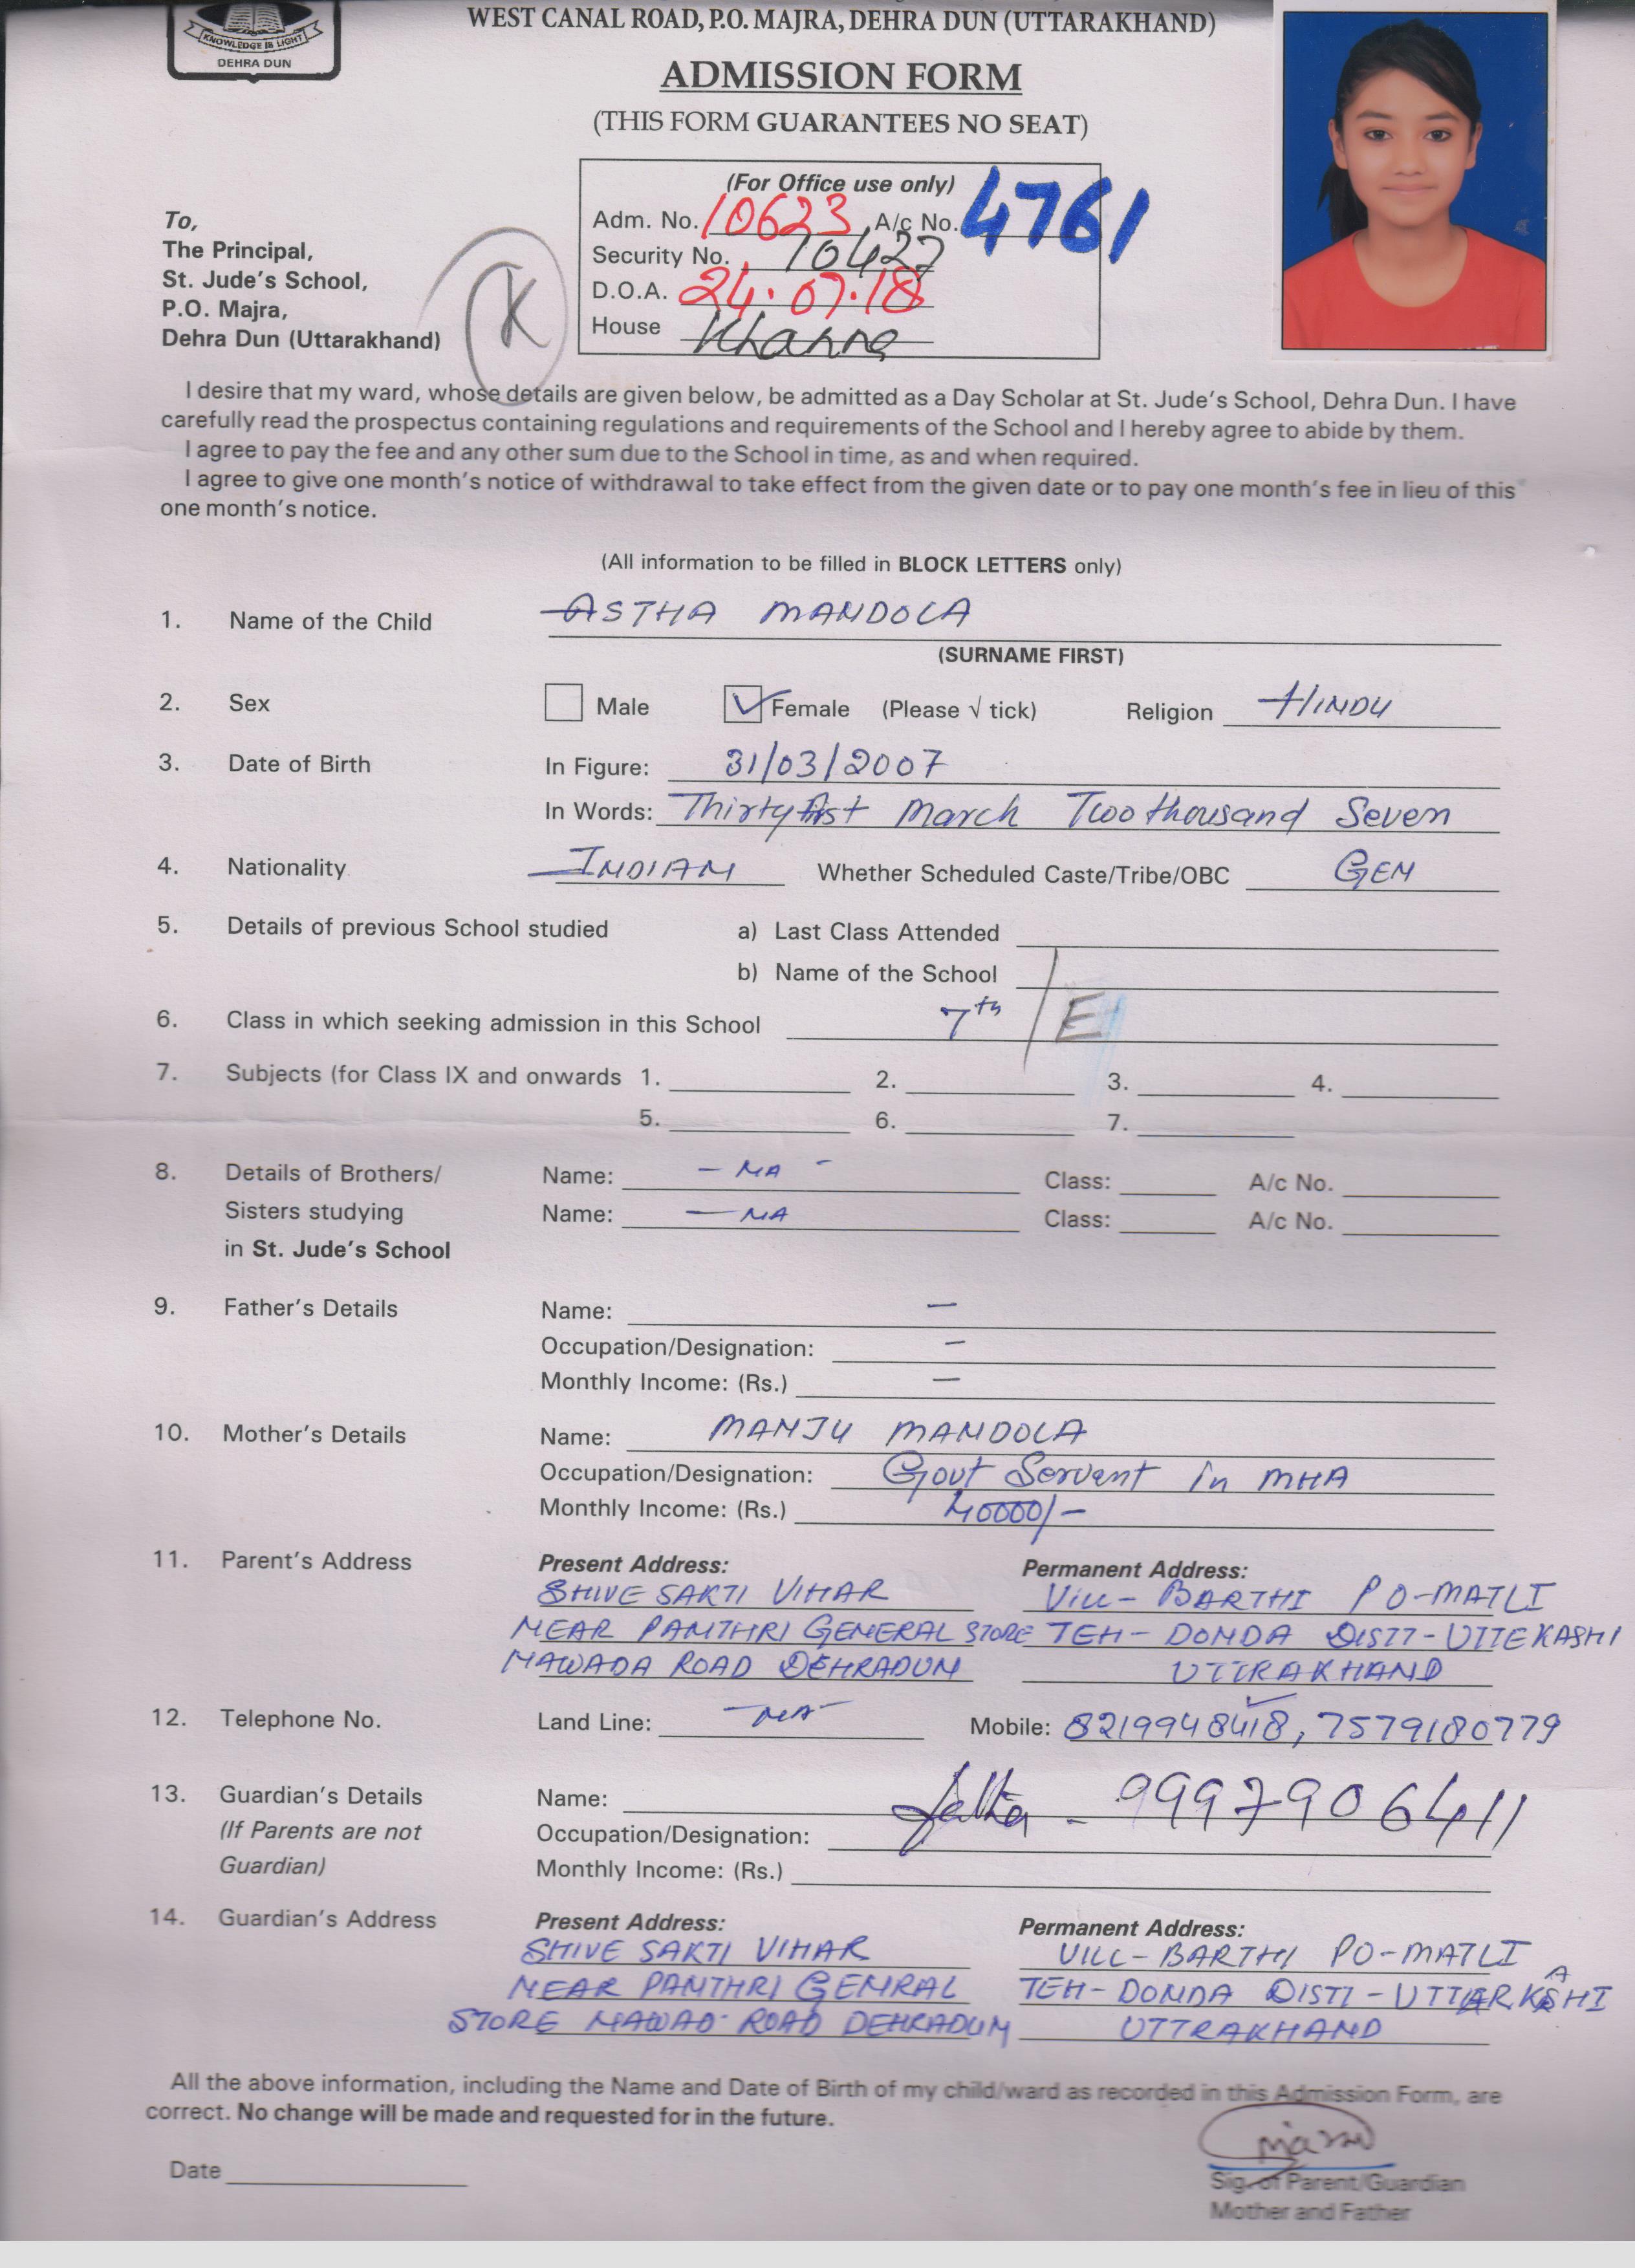 KNOWLEDGE IS LIGHT
DEHRA DUN
WEST CANAL ROAD, P.O. MAJRA, DEHRA DUN (UTTARAKHAND)
ADMISSION FORM
(THIS FORM GUARANTEES NO SEAT)
(For Office use only)
Adm. No. 10623 A/c No. 4761
Security No. 10427
D.O.A. 24.07.18
House Khanna
To,
The Principal,
St. Jude's School,
P.O. Majra,
Dehra Dun (Uttarakhand)
K
I desire that my ward, whose details are given below, be admitted as a Day Scholar at St. Jude's School, Dehra Dun. I have
carefully read the prospectus containing regulations and requirements of the School and I hereby agree to abide by them.
I agree to pay the fee and any other sum due to the School in time, as and when required.
I agree to give one month's notice of withdrawal to take effect from the given date or to pay one month's fee in lieu of this
one month's notice.
(All information to be filled in BLOCK LETTERS only)
1. Name of the Child ASTHA MANDOLA
(SURNAME FIRST)
2. Sex Male Female (Please √ tick) Religion HINDU
3. Date of Birth In Figure: 31/03/2007
In Words: Thirty first March Two thousand Seven
4. Nationality INDIAN Whether Scheduled Caste/Tribe/OBC GEN
5. Details of previous School studied a) Last Class Attended
b) Name of the School
6. Class in which seeking admission in this School 7th / E
7. Subjects (for Class IX and onwards 1. 2. 3. 4.
5. 6. 7.
8. Details of Brothers/ Name: - NA - Class: A/c No.
Sisters studying Name: - NA Class: A/c No.
in St. Jude's School
9. Father's Details Name: -
Occupation/Designation: -
Monthly Income: (Rs.) -
10. Mother's Details Name: MANJU MANDOLA
Occupation/Designation: Govt Servent in MHA
Monthly Income: (Rs.) 40000/-
11. Parent's Address Present Address: Permanent Address:
SHIVE SAKTI VIHAR Vill- BARTHI PO-MATLI
NEAR PANTHRI GENERAL STORE TEH- DONDA DISTT- UTTEKASHI
NAWADA ROAD DEHRADUN UTTRAKHAND
12. Telephone No. Land Line: -NA- Mobile: 8219948418, 7579180779
13. Guardian's Details Name: - 9997906411
(If Parents are not Occupation/Designation:
Guardian) Monthly Income: (Rs.)
14. Guardian's Address Present Address: Permanent Address:
SHIVE SAKTI VIHAR VILL- BARTHI PO-MATLI
NEAR PANTHRI GENRAL TEH- DONDA DISTT - UTTARKASHI
STORE NAWAD ROAD DEHRADUN UTTRAKHAND
All the above information, including the Name and Date of Birth of my child/ward as recorded in this Admission Form, are
correct. No change will be made and requested for in the future.
Date
Sig. of Parent/Guardian
Mother and Father